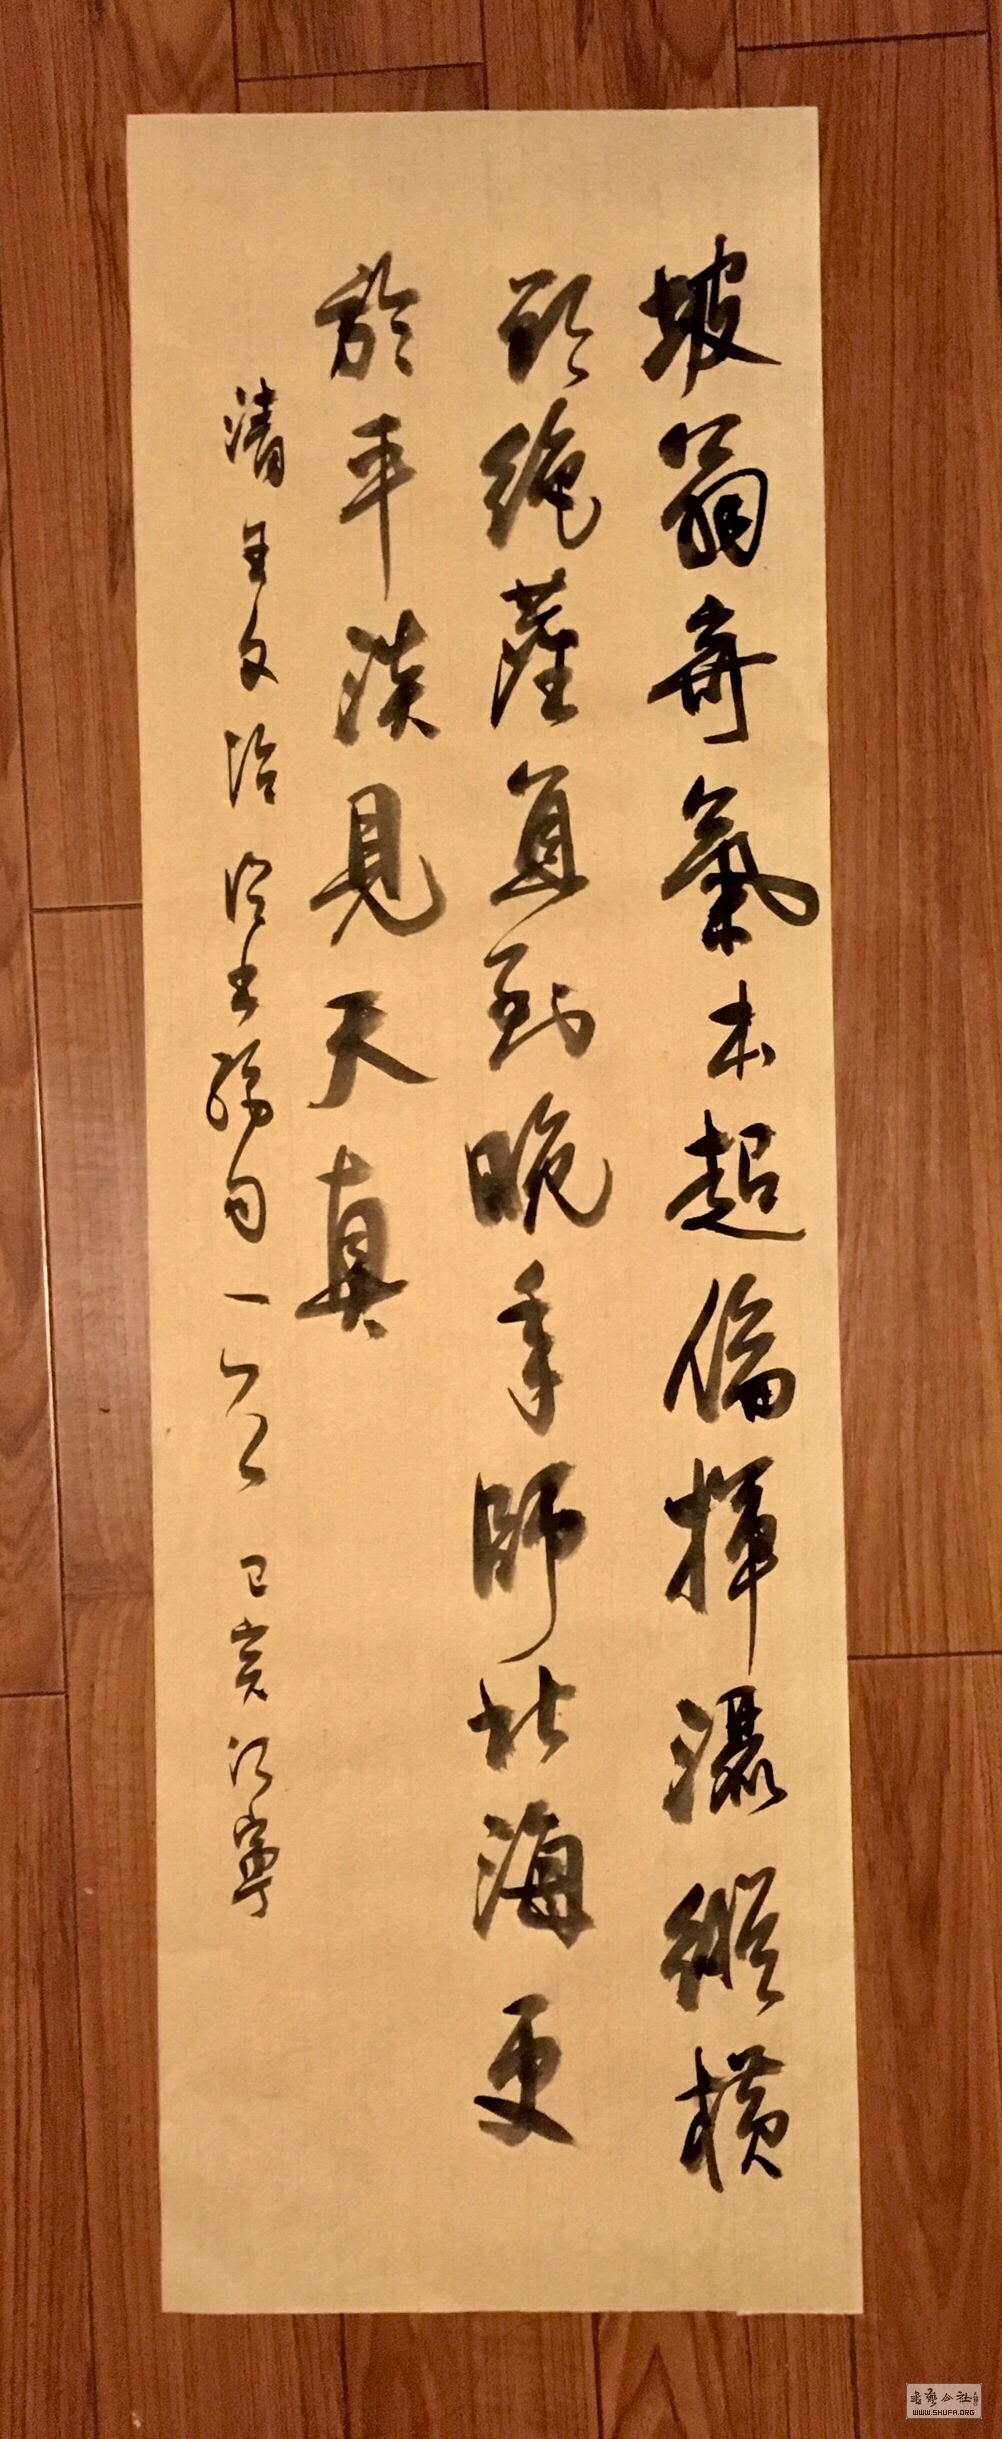 坡翁奇氣本超倫揮灑縱橫
欲絕塵直到晚年師北海更
於平淡見天真
清王文治論書絕句一首 己亥江寧
書藝公社
WWW.SHUFA.ORG